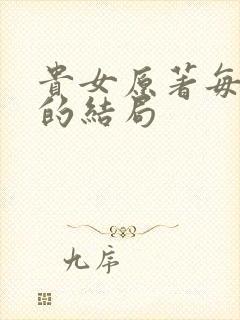 貴女原著每
的結局
九序